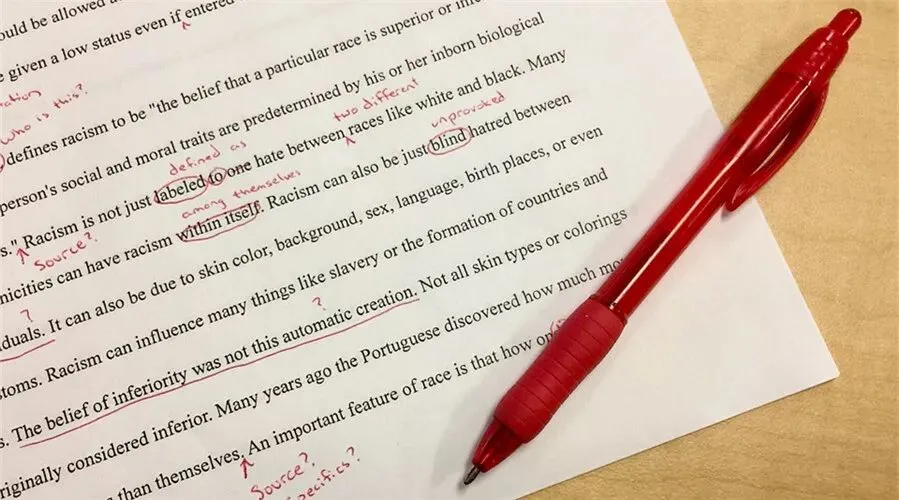 ould be allowed a
e given a low status even if entered
^
e the belief that a particular race is superior or
who is this?
defines racism to be "the belief that a particular race is superior or
person's social and moral traits are predetermined by his or her inborn biological
defined as
two different
s." Racism is not just labeled to one hate between races like white and black. Many
^
Source?
among themselves
unprovoked
nicities can have racism within itself. Racism can also be just blind hatred between
?
duals. It can also be due to skin color, background, sex, language, birth places, or even
?
stoms. Racism can influence many things like slavery or the formation of countries and
s. The belief of inferiority was not this automatic creation. Not all skin types or colorings
riginally considered inferior. Many years ago the Portuguese discovered how much mo
than themselves. An important feature of race is that how
^
Source?
pecifics?